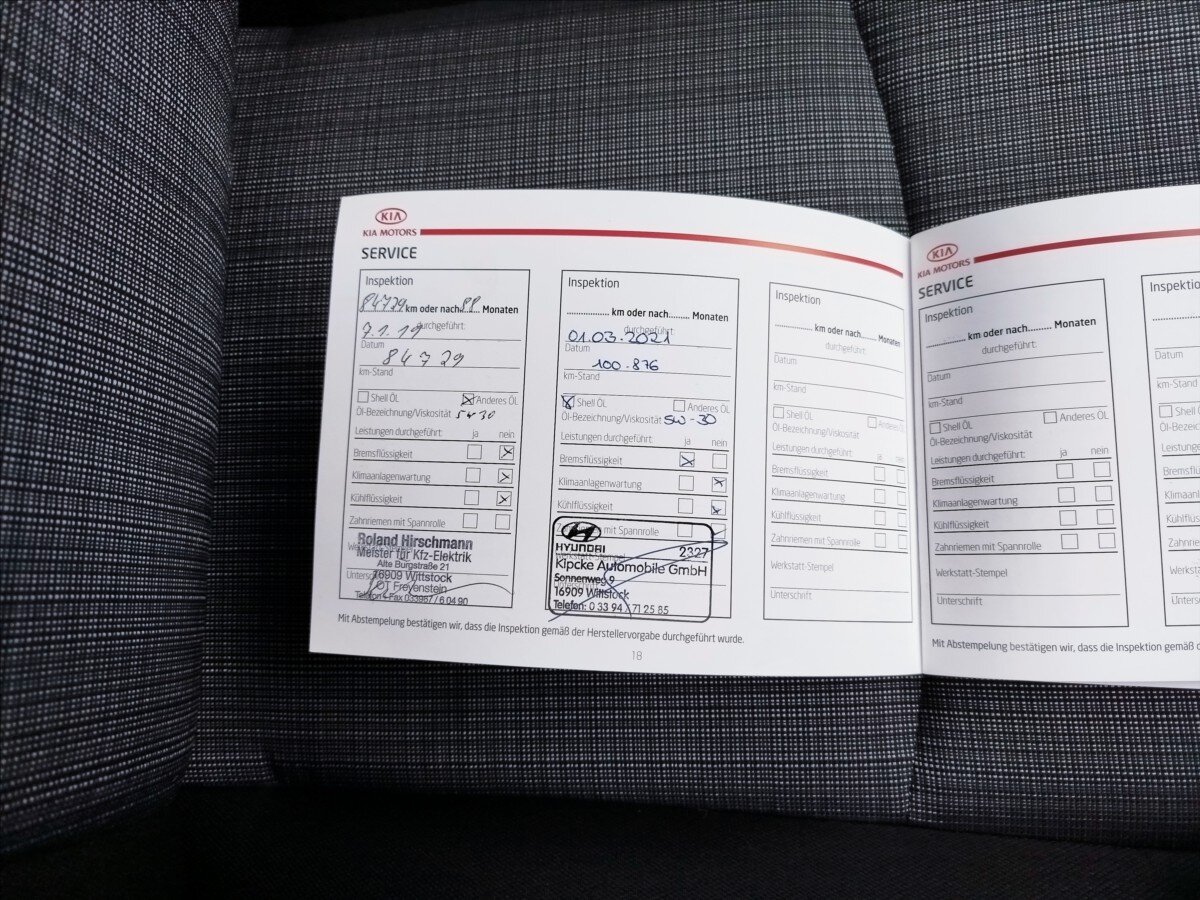 KIA
KIA MOTORS
SERVICE
Inspektion
84729 km oder nach 88 Monaten
durchgeführt:
7.1.19
Datum
84729
km-Stand
Shell ÖL
Anderes ÖL
Öl-Bezeichnung/Viskosität 5W30
Leistungen durchgeführt: ja nein
Bremsflüssigkeit
Klimaanlagenwartung
Kühlflüssigkeit
Zahnriemen mit Spannrolle
Roland Hirschmann
Meister für Kfz-Elektrik
Alte Burgstraße 21
16909 Wittstock
OT Freyenstein
Telefon + Fax 033967 / 6 04 90
Inspektion
km oder nach......... Monaten
durchgeführt:
01.03.2021
Datum
100.876
km-Stand
Shell ÖL
Anderes ÖL
Öl-Bezeichnung/Viskosität 5W-30
Leistungen durchgeführt: ja nein
Bremsflüssigkeit
Klimaanlagenwartung
Kühlflüssigkeit
mit Spannrolle
HYUNDAI 2327
Kipcke Automobile GmbH
Sonnenweg 9
16909 Wittstock
Telefon: 0 33 94 / 71 25 85
Inspektion
km oder nach......... Monaten
durchgeführt:
Datum
km-Stand
Shell ÖL
Anderes ÖL
Öl-Bezeichnung/Viskosität
Leistungen durchgeführt: ja nein
Bremsflüssigkeit
Klimaanlagenwartung
Kühlflüssigkeit
Zahnriemen mit Spannrolle
Werkstatt-Stempel
Unterschrift
Mit Abstempelung bestätigen wir, dass die Inspektion gemäß der Herstellervorgabe durchgeführt wurde.
18
KIA
KIA MOTORS
SERVICE
Inspektion
km oder nach......... Monaten
durchgeführt:
Datum
km-Stand
Shell ÖL
Anderes ÖL
Öl-Bezeichnung/Viskosität
Leistungen durchgeführt: ja nein
Bremsflüssigkeit
Klimaanlagenwartung
Kühlflüssigkeit
Zahnriemen mit Spannrolle
Werkstatt-Stempel
Unterschrift
Datum
km-Stand
Shell ÖL
Mit Abstempelung bestätigen wir, dass die Inspektion gemäß